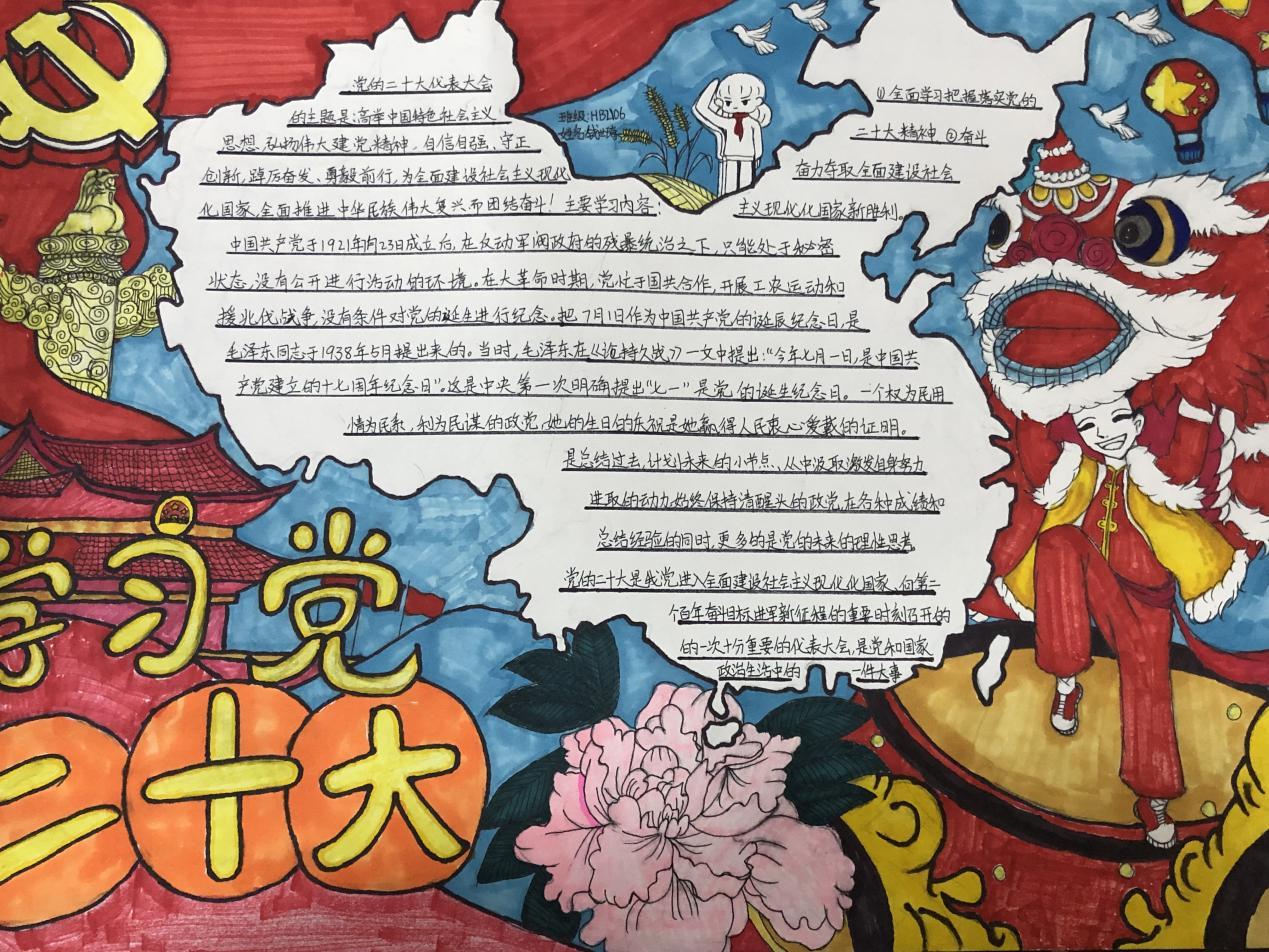 党的二十大代表大会
的主题是:高举中国特色社会主义
思想,弘扬伟大建党精神,自信自强、守正
创新,踔厉奋发、勇毅前行,为全面建设社会主义现代
化国家、全面推进中华民族伟大复兴而团结奋斗!主要学习内容:
中国共产党于1921年7月23日成立后,在反动军阀政府的残暴统治之下,只能处于秘密
状态,没有公开进行活动的环境。在大革命时期,党忙于国共合作,开展工农运动和
援北伐战争,没有条件对党的诞生进行纪念。把7月1日作为中国共产党的诞辰纪念日,是
毛泽东同志于1938年5月提出来的。当时,毛泽东在《论持久战》一文中提出:“今年七月一日,是中国共
产党建立的十七周年纪念日”。这是中央第一次明确提出“七一”是党的诞生纪念日。一个权为民用
情为民系,利为民谋的政党,她的生日的庆祝是她赢得人民衷心爱戴的证明。
是总结过去,计划未来的小节点、从中汲取激发自身努力
进取的动力,始终保持清醒头的政党,在各种成绩和
总结经验的同时,更多的是党的未来的理性思考
党的二十大是我党进入全面建设社会主义现代化国家、向第二
个百年奋斗目标进军新征程的重要时刻召开的
的一次十分重要的代表大会,是党和国家
政治生活中的 一件大事
班级:HB2106
姓名:
①全面学习把握落实党的
二十大精神 ②奋斗
奋力夺取全面建设社会
主义现代化国家新胜利。
学习党
二十大